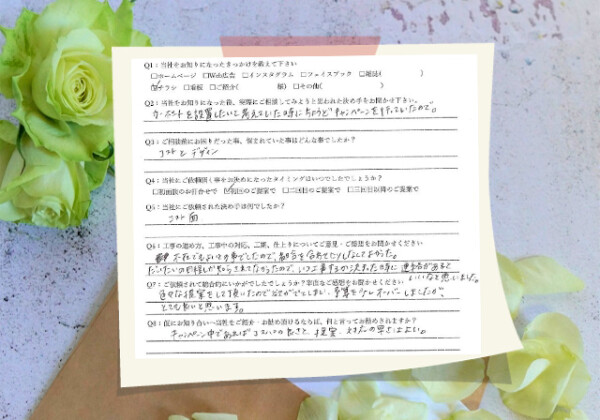 Q1：当社をお知りになったきっかけを教えて下さい
□ホームページ □Web広告 □インスタグラム □フェイスブック □雑誌( )
☑チラシ □看板 □ご紹介( 様) □その他( )
Q2：当社をお知りになった後、実際にご相談してみようと思われた決め手をお聞かせ下さい。
カーポートを設置したいと考えていた時にちょうどキャンペーンを行っていたので。
Q3：ご相談前にお困りだった事、悩まれていた事はどんな事でしたか？
コストとデザイン
Q4：当社にご依頼頂く事をお決めになったタイミングはいつでしたでしょうか？
□初回のお打合せで ☑初回のご提案で □二回目のご提案で □三回目以降のご提案で
Q5：当社にご依頼された決め手は何でしたか？
コスト面
Q6：工事の進め方、工事中の対応、工期、仕上りについてご意見・ご感想をお聞かせください
不在でもよいとの事でしたので、都合を合わせたりしなくてよかった。
だいたいの日程しか知らされてなかったので、いつ工事するか決まった時に連絡があると
いいなと思いました。
Q7：ご依頼されて総合的にいかがでしたでしょうか？率直なご感想をお聞かせください
色々な提案をして頂いたので 予算を少しオーバーしましたが、
とても良いと思います。
Q8：仮にお知り合いへ当社をご紹介・お勧め頂けるならば、何と言ってお勧めされますか？
キャンペーン中であればコスパの良さと、提案、対応の早さはよい。